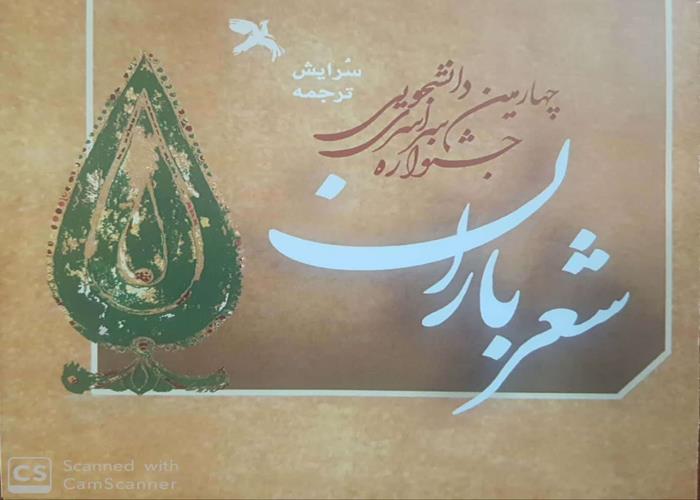 سُرایش
ترجمه
چهارمین
جشنواره سراسری دانشجویی
شعر باران
CS Scanned with
CamScanner